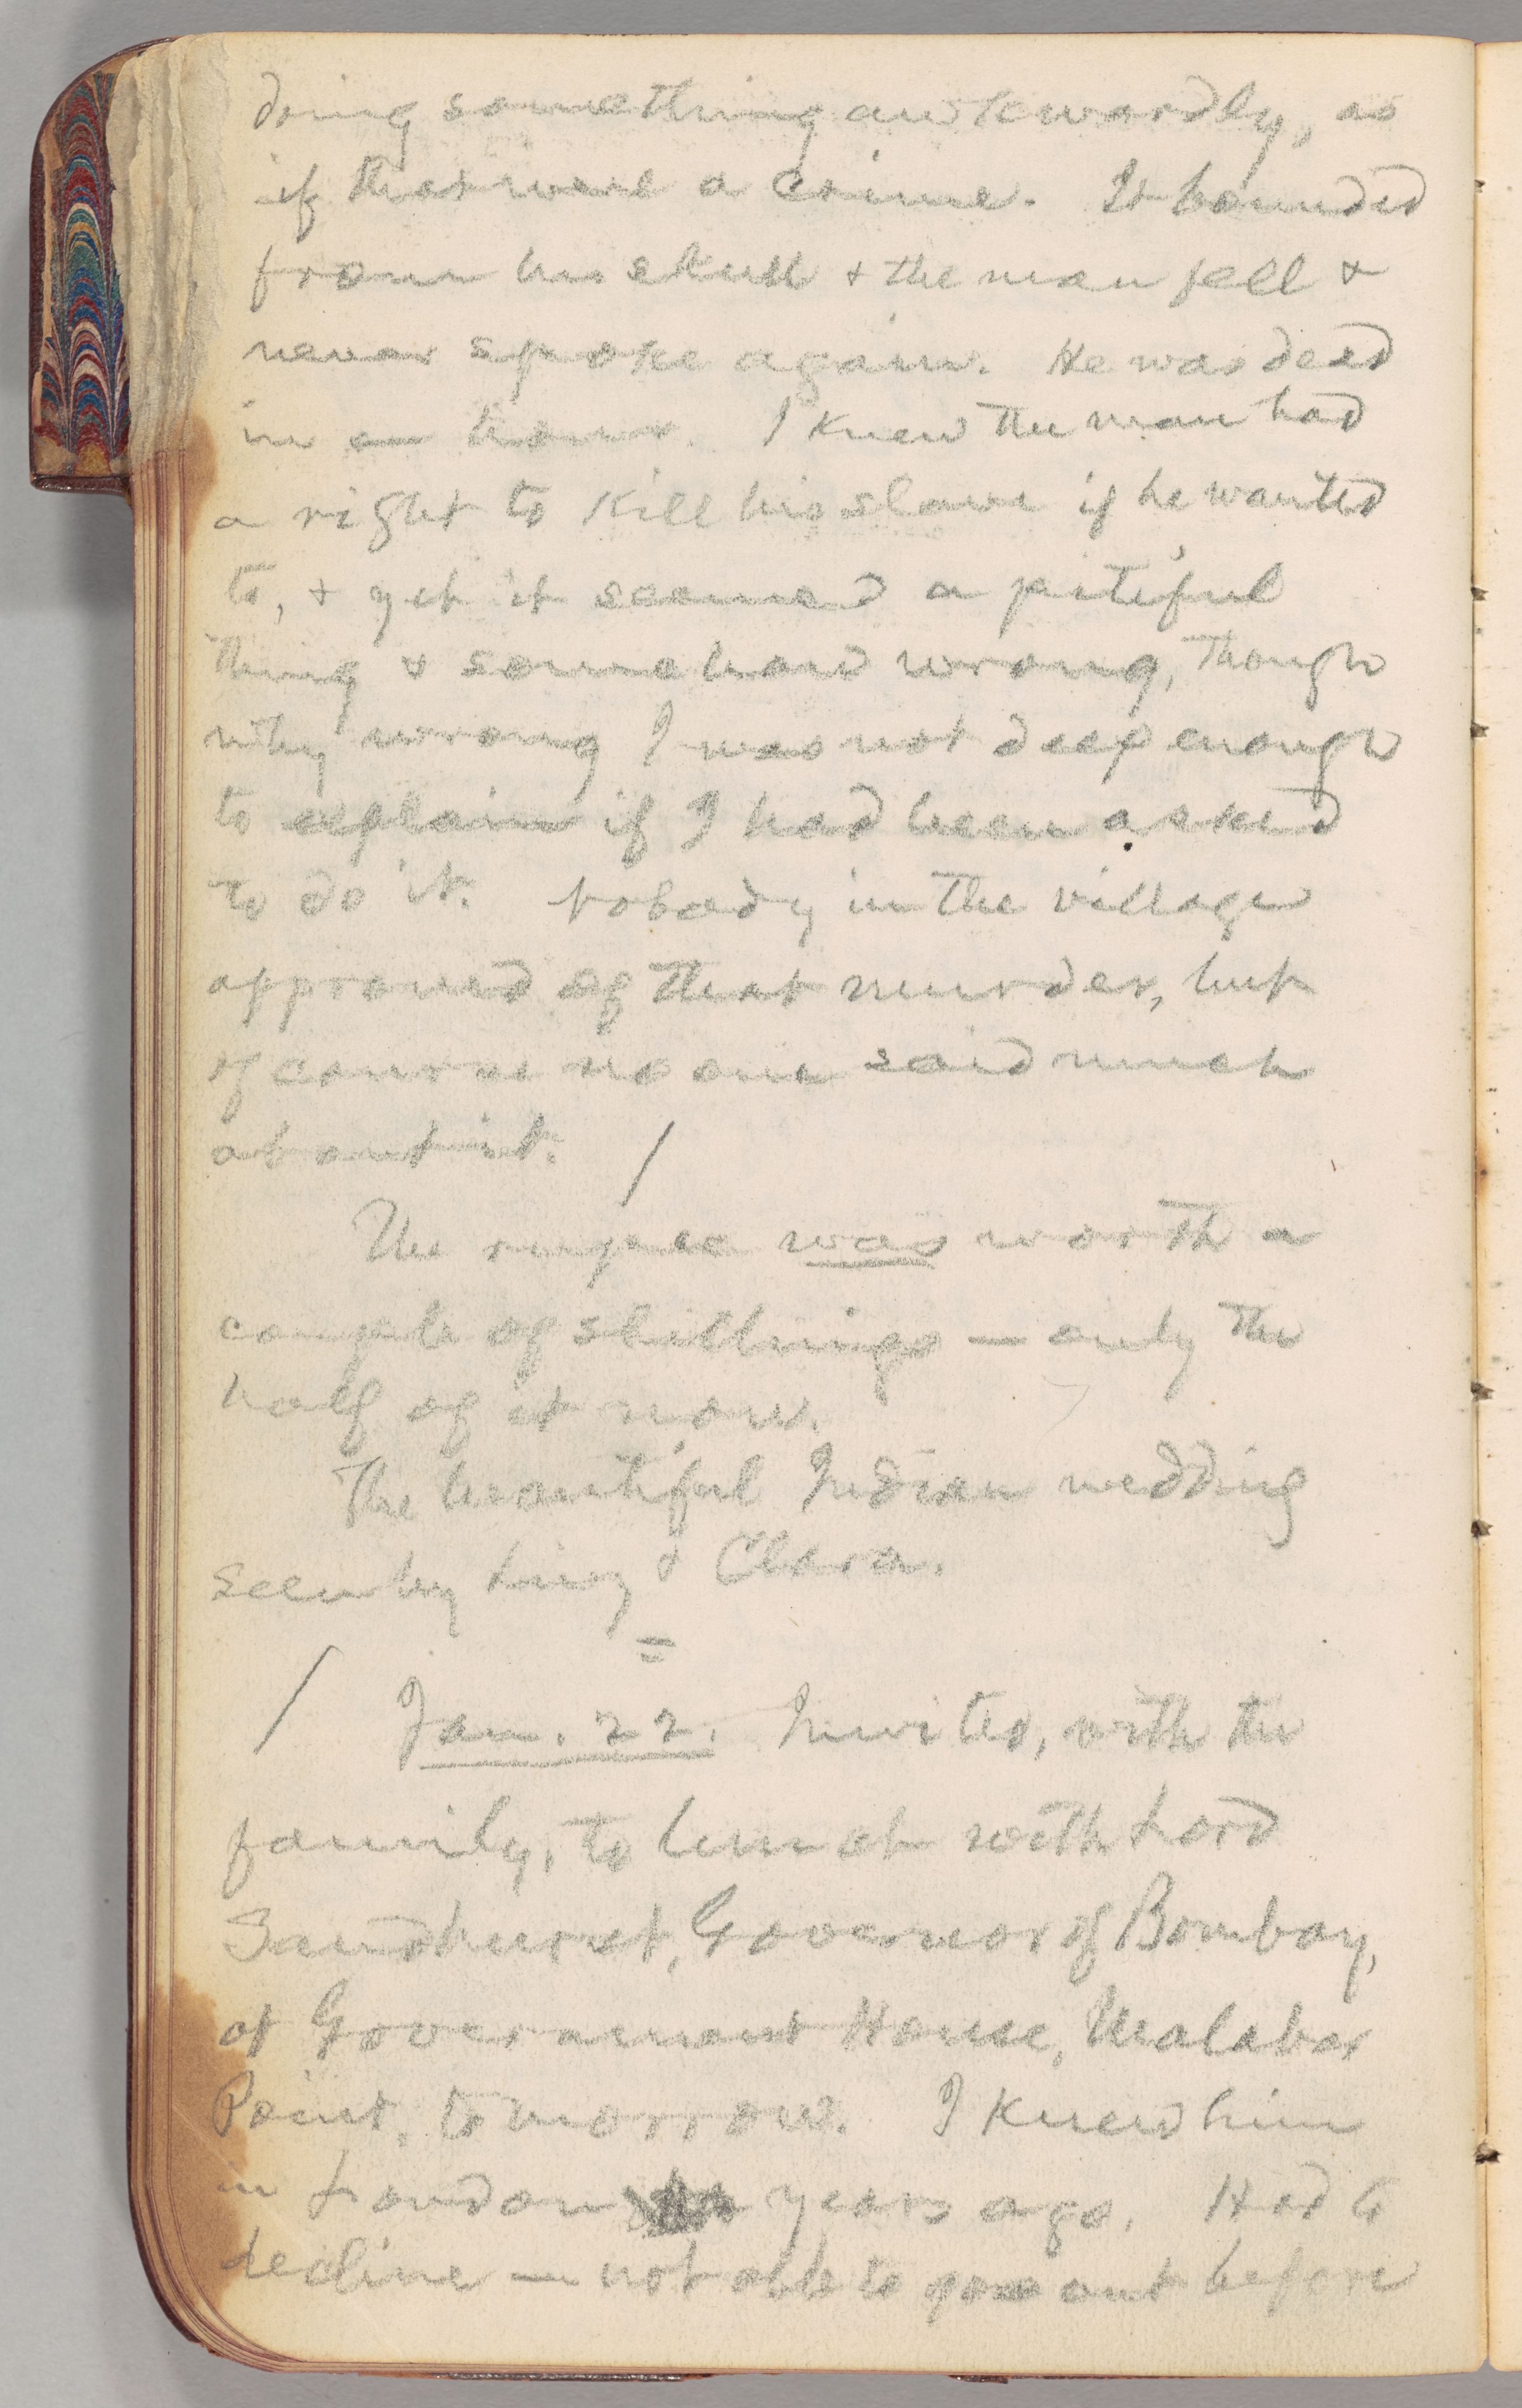 doing something awkwardly, as
if that were a crime. It bounded
from his skull & the man fell &
never spoke again. He was dead
in an hour. I knew the man had
a right to kill his slave if he wanted
to, & yet it seemed a pitiful
thing & somehow wrong, though
why wrong I was not deep enough
to explain if I had been asked
to do it. Nobody in the village
approved of that murder, but
of course no one said much
about it. /
The rupee was worth a
couple of shillings — only the
half of it now.
The beautiful Indian wedding
seen by Livy & Clara.
=
/ Jan. 22. Invited, with the
family, to lunch with Lord
Sandhurst, Governor of Bombay,
at Government House, Malabar
Point, tomorrow. I knew him
in London years ago. Had to
decline — not able to go out before